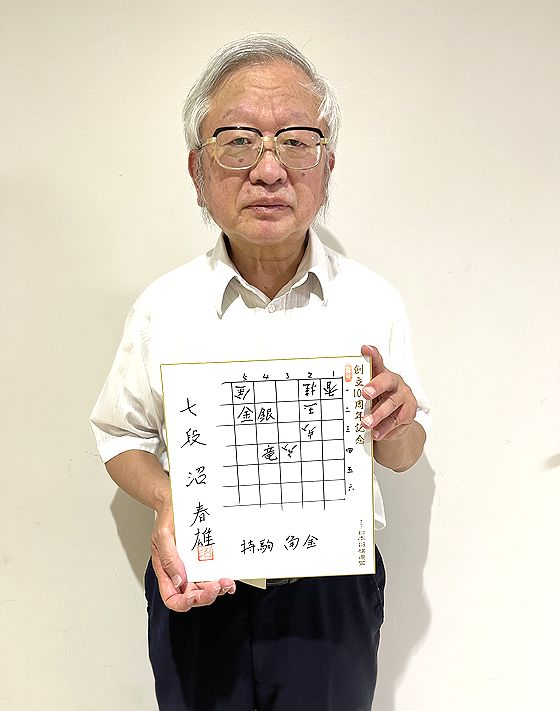 創立10周年記念
5 4 3 2 1
金 桂 香
金 銀 王
歩
竜 歩
一
二
三
四
五
六
持駒 角金
七段 沼 春雄
日本将棋連盟